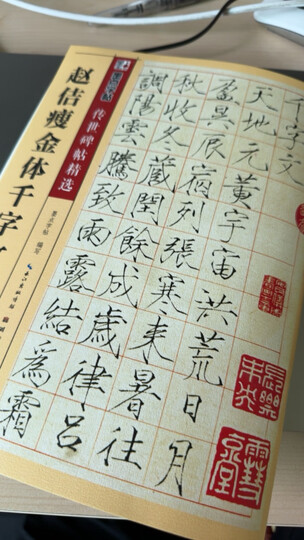 墨点字帖
传世碑帖精选
赵佶瘦金体千字
墨点字帖 编写
千字文
天地元黃宇宙洪荒日月
盈昃辰宿列張寒來暑往
秋收冬藏閏餘成歲律吕
調陽雲騰致雨露結爲霜